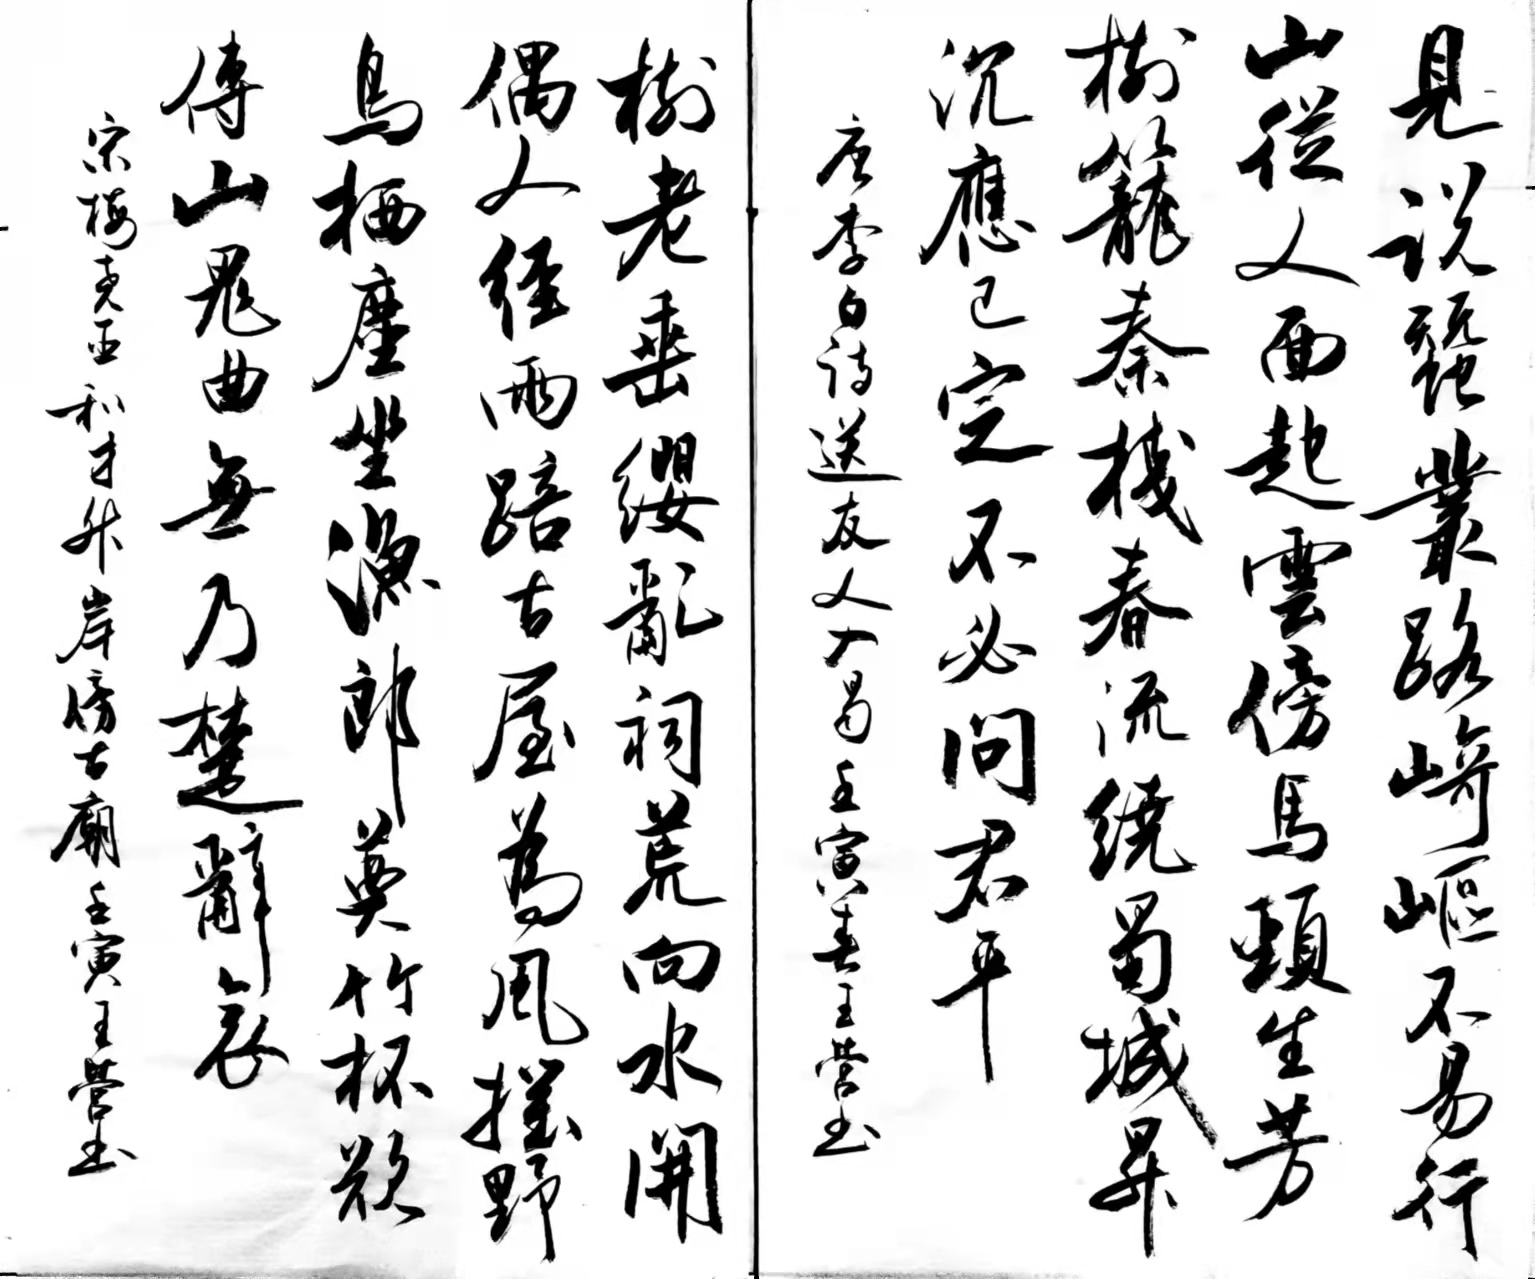 見說蠶叢路崎嶇不易行
山從人面起雲傍馬頭生芳
樹籠秦棧春流繞蜀城昇
沉應已定不必問君平
唐李白詩送友人入蜀壬寅春王營書
樹老垂纓亂祠荒向水開
偶人經雨踣古屋為風摧野
鳥栖塵坐漁郎奠竹杯欲
傳山鬼曲無乃楚辭哀
宋梅堯臣和才叔岸傍古廟壬寅王營書